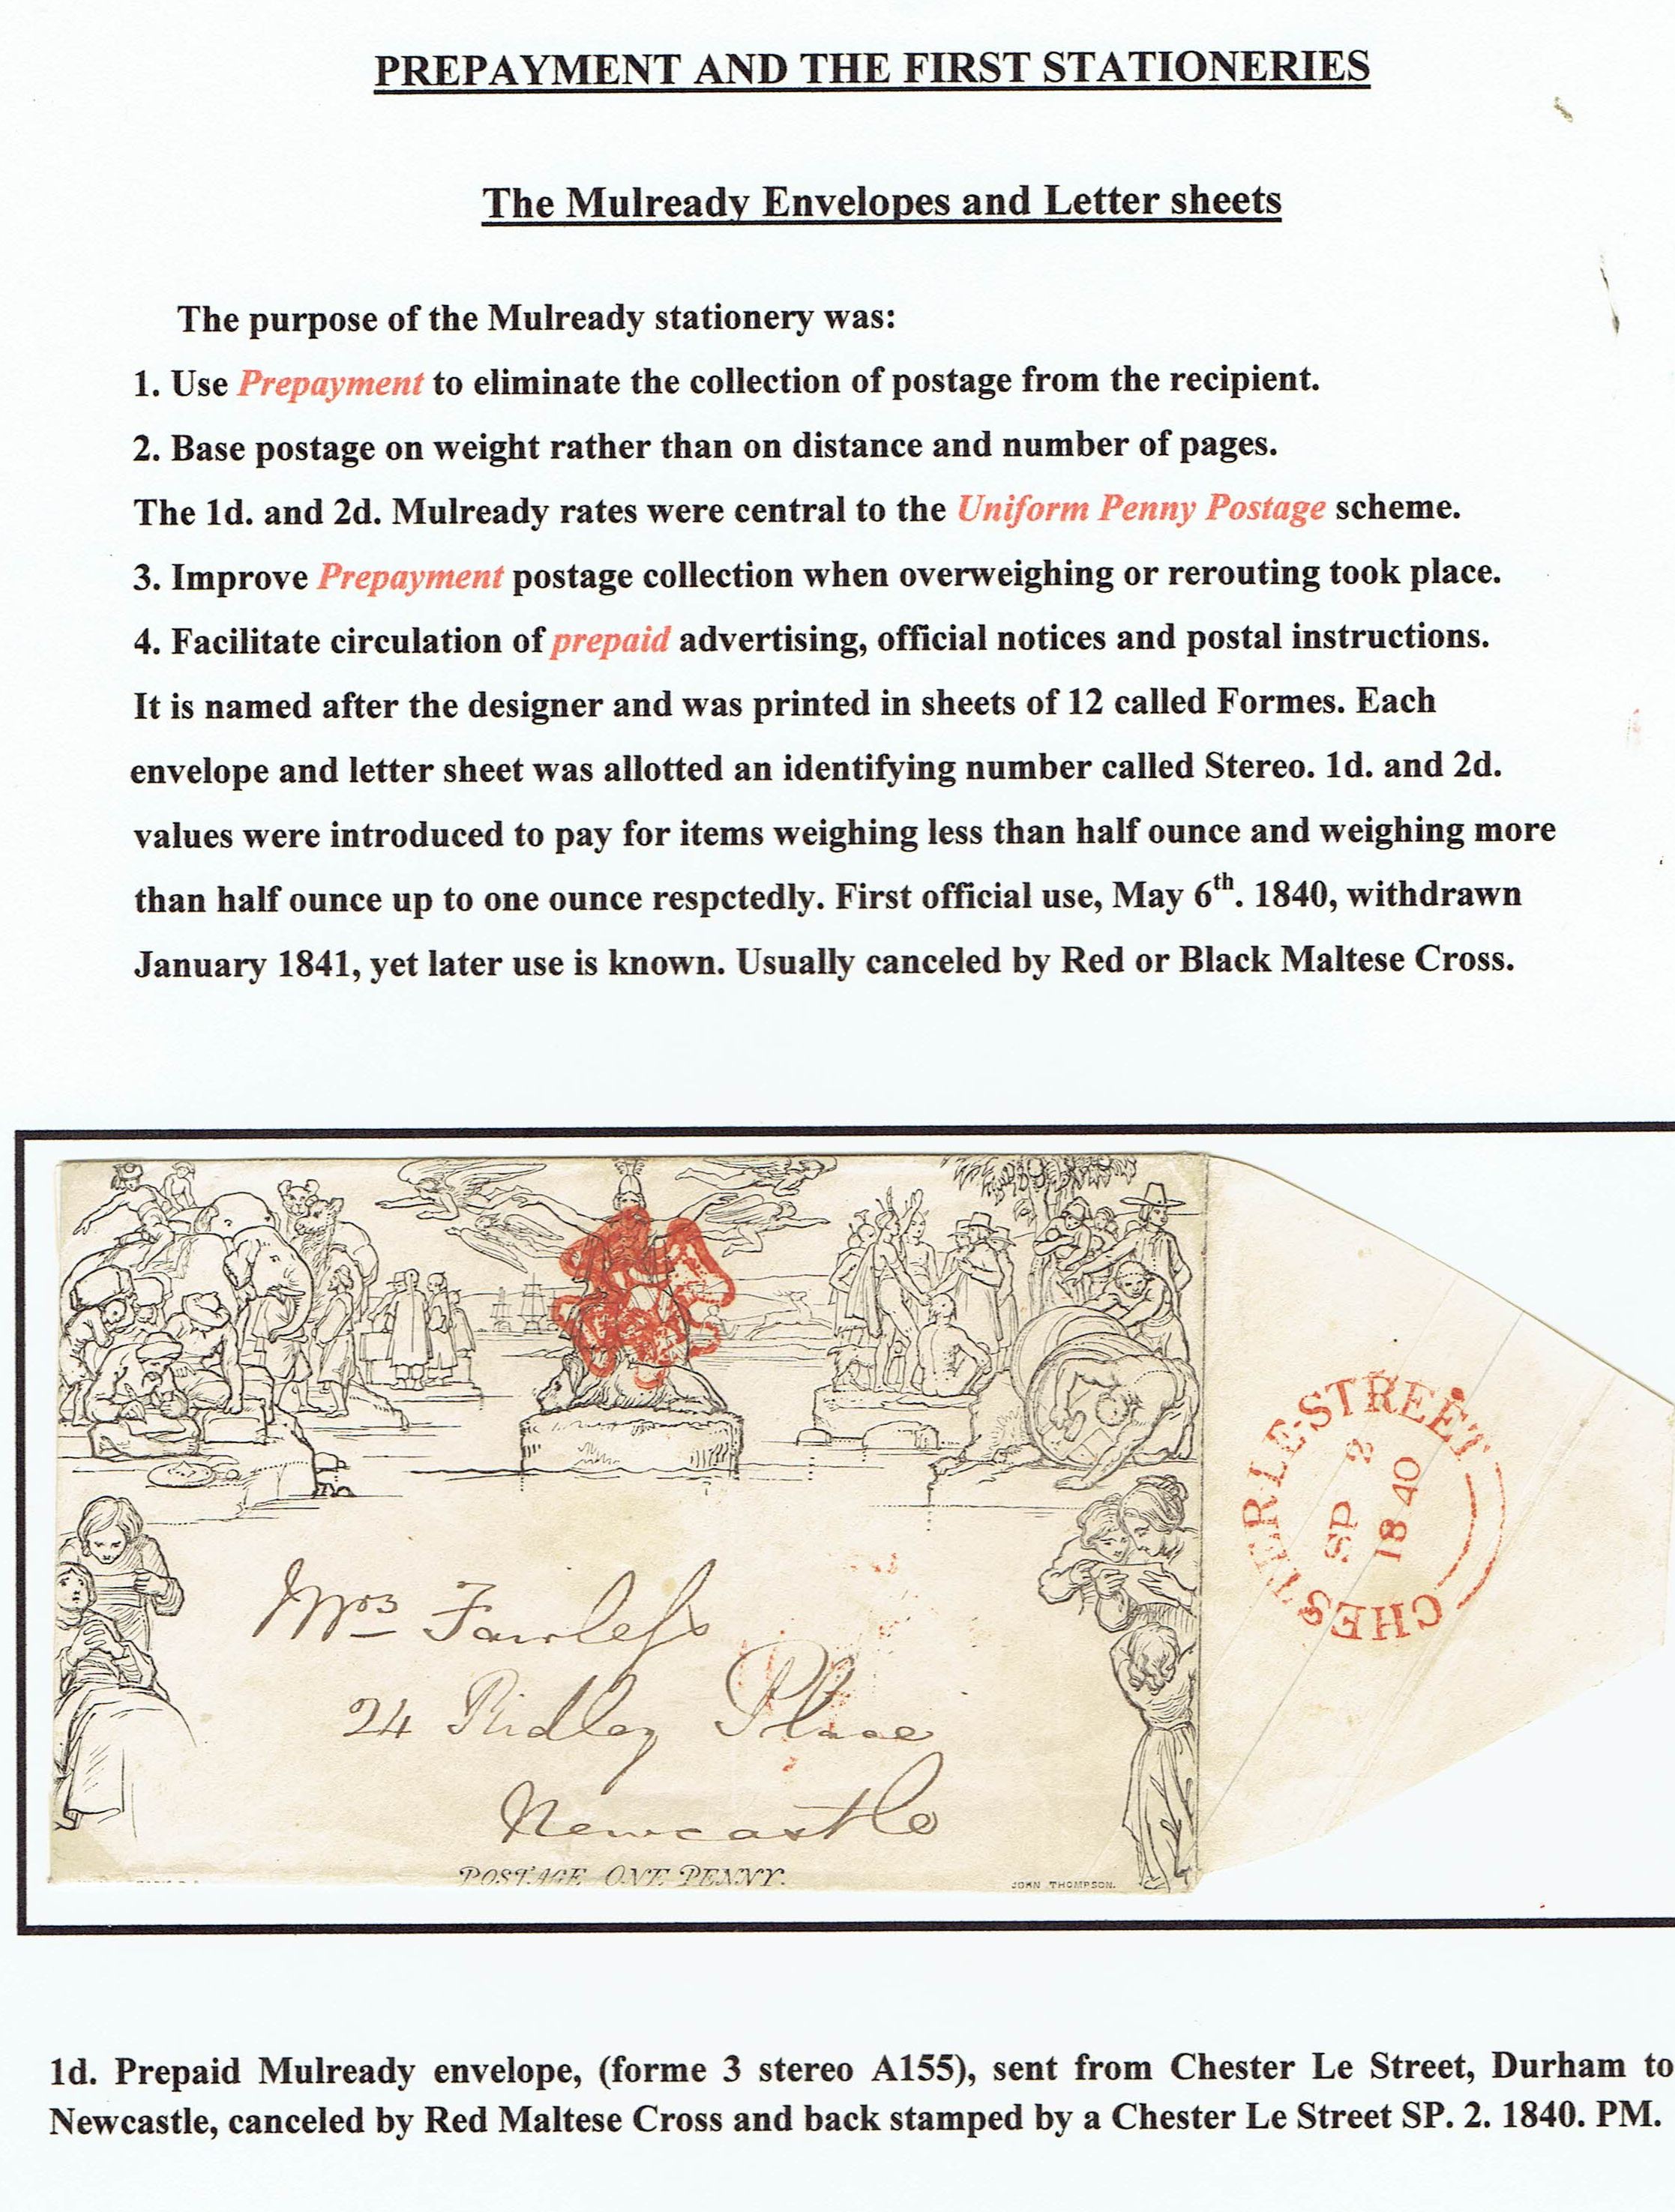 PREPAYMENT AND THE FIRST STATIONERIES
The Mulready Envelopes and Letter sheets
The purpose of the Mulready stationery was:
1. Use Prepayment to eliminate the collection of postage from the recipient.
2. Base postage on weight rather than on distance and number of pages.
The 1d. and 2d. Mulready rates were central to the Uniform Penny Postage scheme.
3. Improve Prepayment postage collection when overweighing or rerouting took place.
4. Facilitate circulation of prepaid advertising, official notices and postal instructions.
It is named after the designer and was printed in sheets of 12 called Formes. Each
envelope and letter sheet was allotted an identifying number called Stereo. 1d. and 2d.
values were introduced to pay for items weighing less than half ounce and weighing more
than half ounce up to one ounce respctedly. First official use, May 6th. 1840, withdrawn
January 1841, yet later use is known. Usually canceled by Red or Black Maltese Cross.
CHESTER-LE-STREET
SP 2
1840
Mrs Fawless
24 Ridley Place
Newcastle
POSTAGE ONE PENNY.
JOHN THOMPSON.
1d. Prepaid Mulready envelope, (forme 3 stereo A155), sent from Chester Le Street, Durham to
Newcastle, canceled by Red Maltese Cross and back stamped by a Chester Le Street SP. 2. 1840. PM.